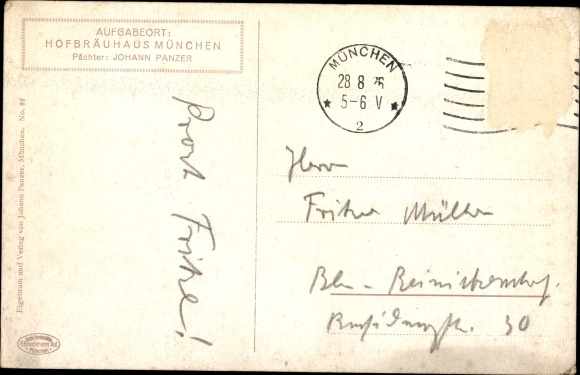 AUFGABEORT:
HOFBRÄUHAUS MÜNCHEN
Pächter: JOHANN PANZER
MÜNCHEN
28 8 26
5-6 V
2
Eigentum und Verlag von Johann Panzer, München. No.
Prost Fritze!
Herrn
Fritze Müller
Bln - Reinickendorf.
30